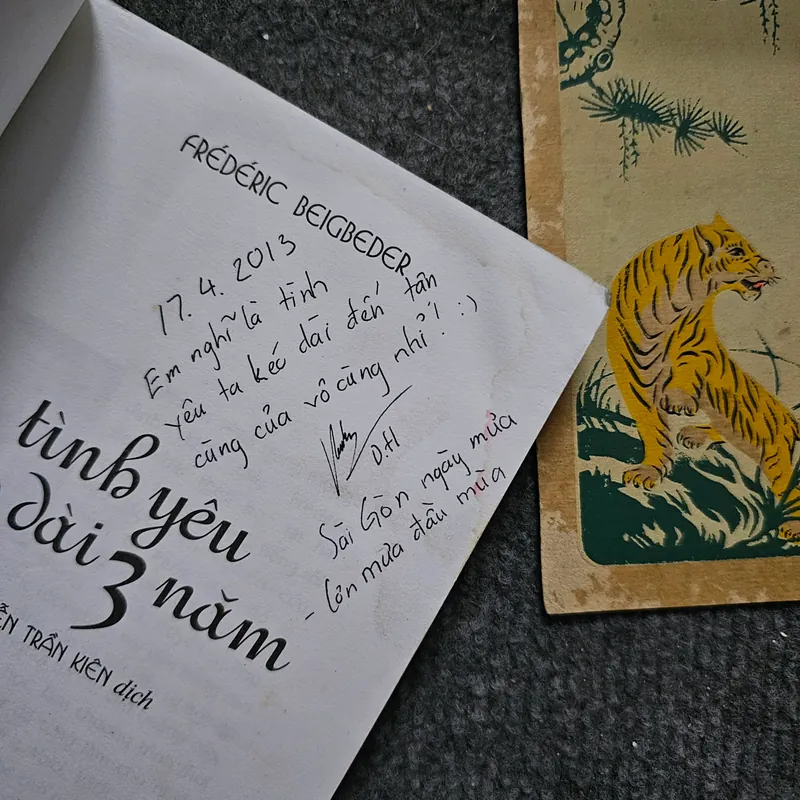 FRÉDÉRIC BEIGBEDER
17.4.2013
Em nghĩ là tình
yêu ta kéo dài đến tân
cùng của vô cùng nhỉ! :)
D.H
Sài Gòn ngày mưa
- Cơn mưa đầu mùa
tình yêu
dài 3 năm
TRẦN KIÊN dịch